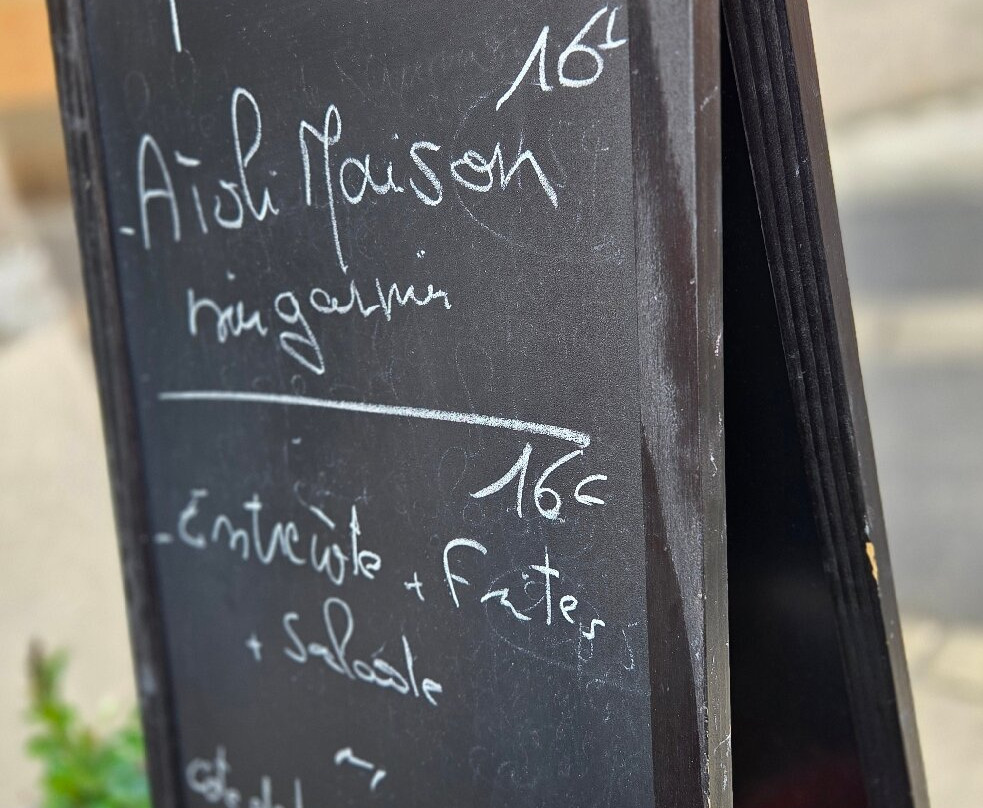 16€
- Aïoli Maison
bien garnie
16€
- Entrecôte + Frites
+ Salade